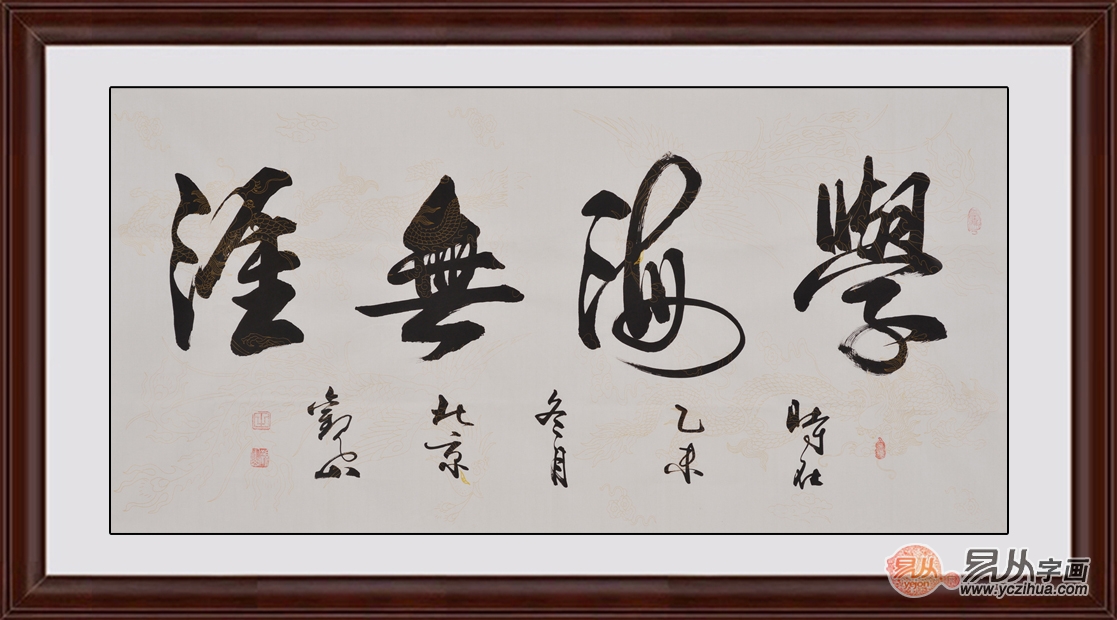 學海無涯
時在乙未冬月北京觀山
易从字画
yejon
www.yczihua.com